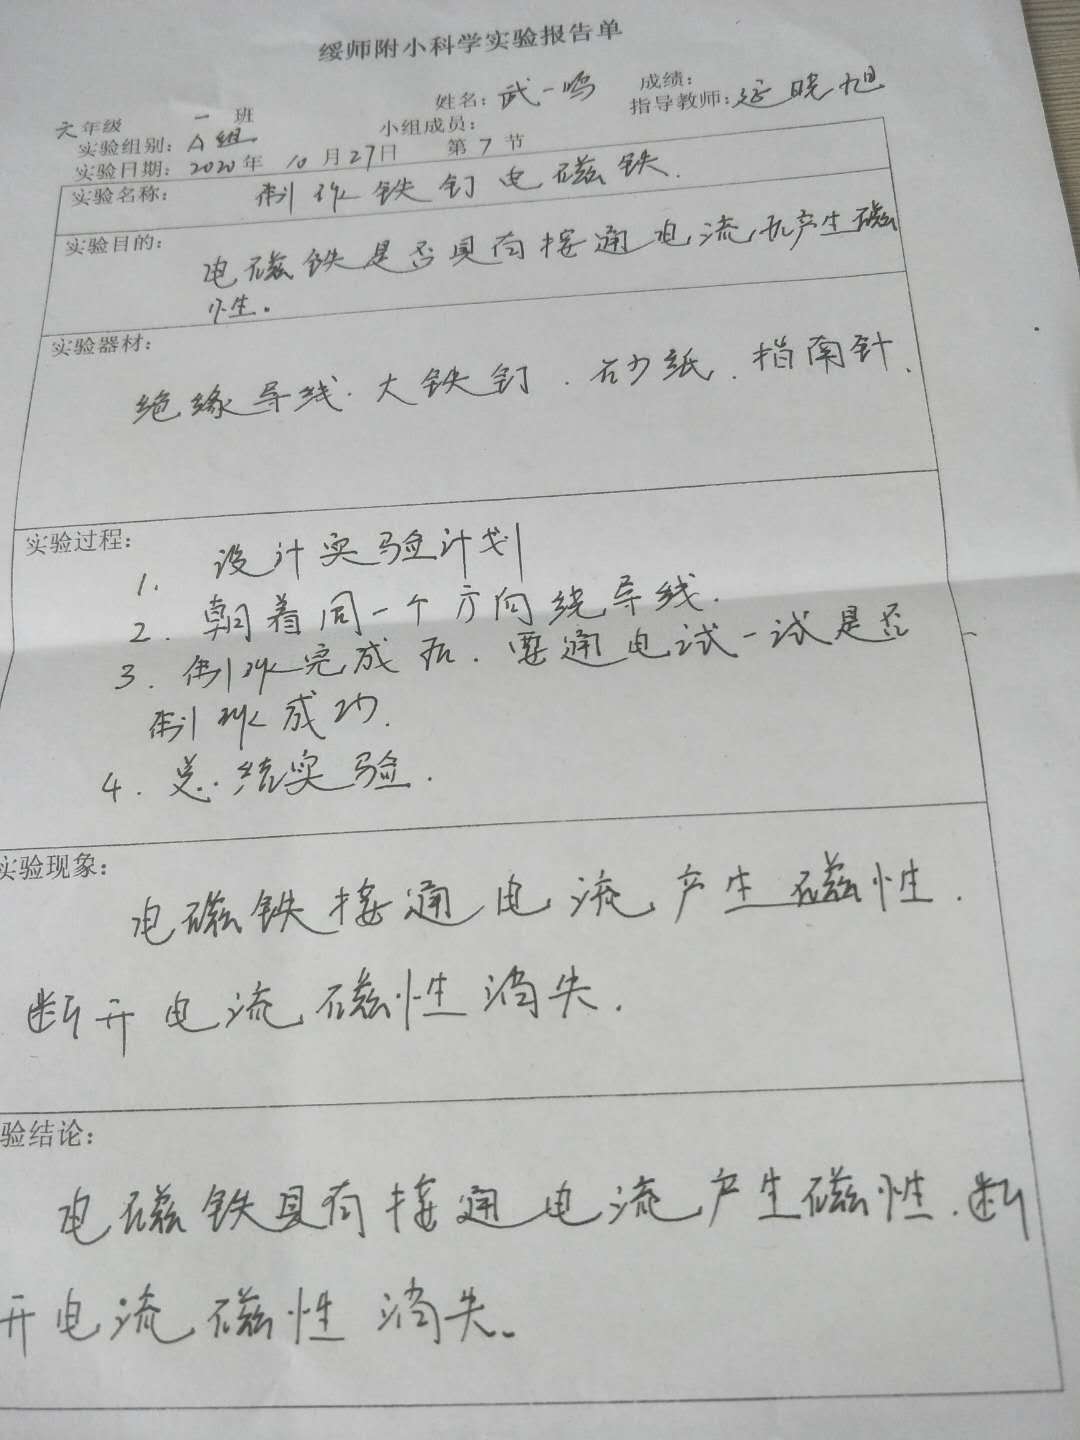 绥师附小科学实验报告单
姓名：武一鸣 成绩：
六年级 一 班 小组成员： 指导教师：延晓旭
实验组别：A组
实验日期：2020年 10月27日 第7节
实验名称： 制作铁钉电磁铁.
实验目的：
电磁铁是否具有接通电流 产生磁
性。
实验器材：
绝缘导线.大铁钉.砂纸.指南针.
实验过程：
1. 设计实验计划
2. 朝着同一个方向绕导线.
3. 制作完成后.要通电试一试是否
制作成功.
4. 总结实验.
实验现象：
电磁铁接通电流产生磁性.
断开电流磁性消失.
验结论：
电磁铁具有接通电流产生磁性.断
开电流磁性消失。